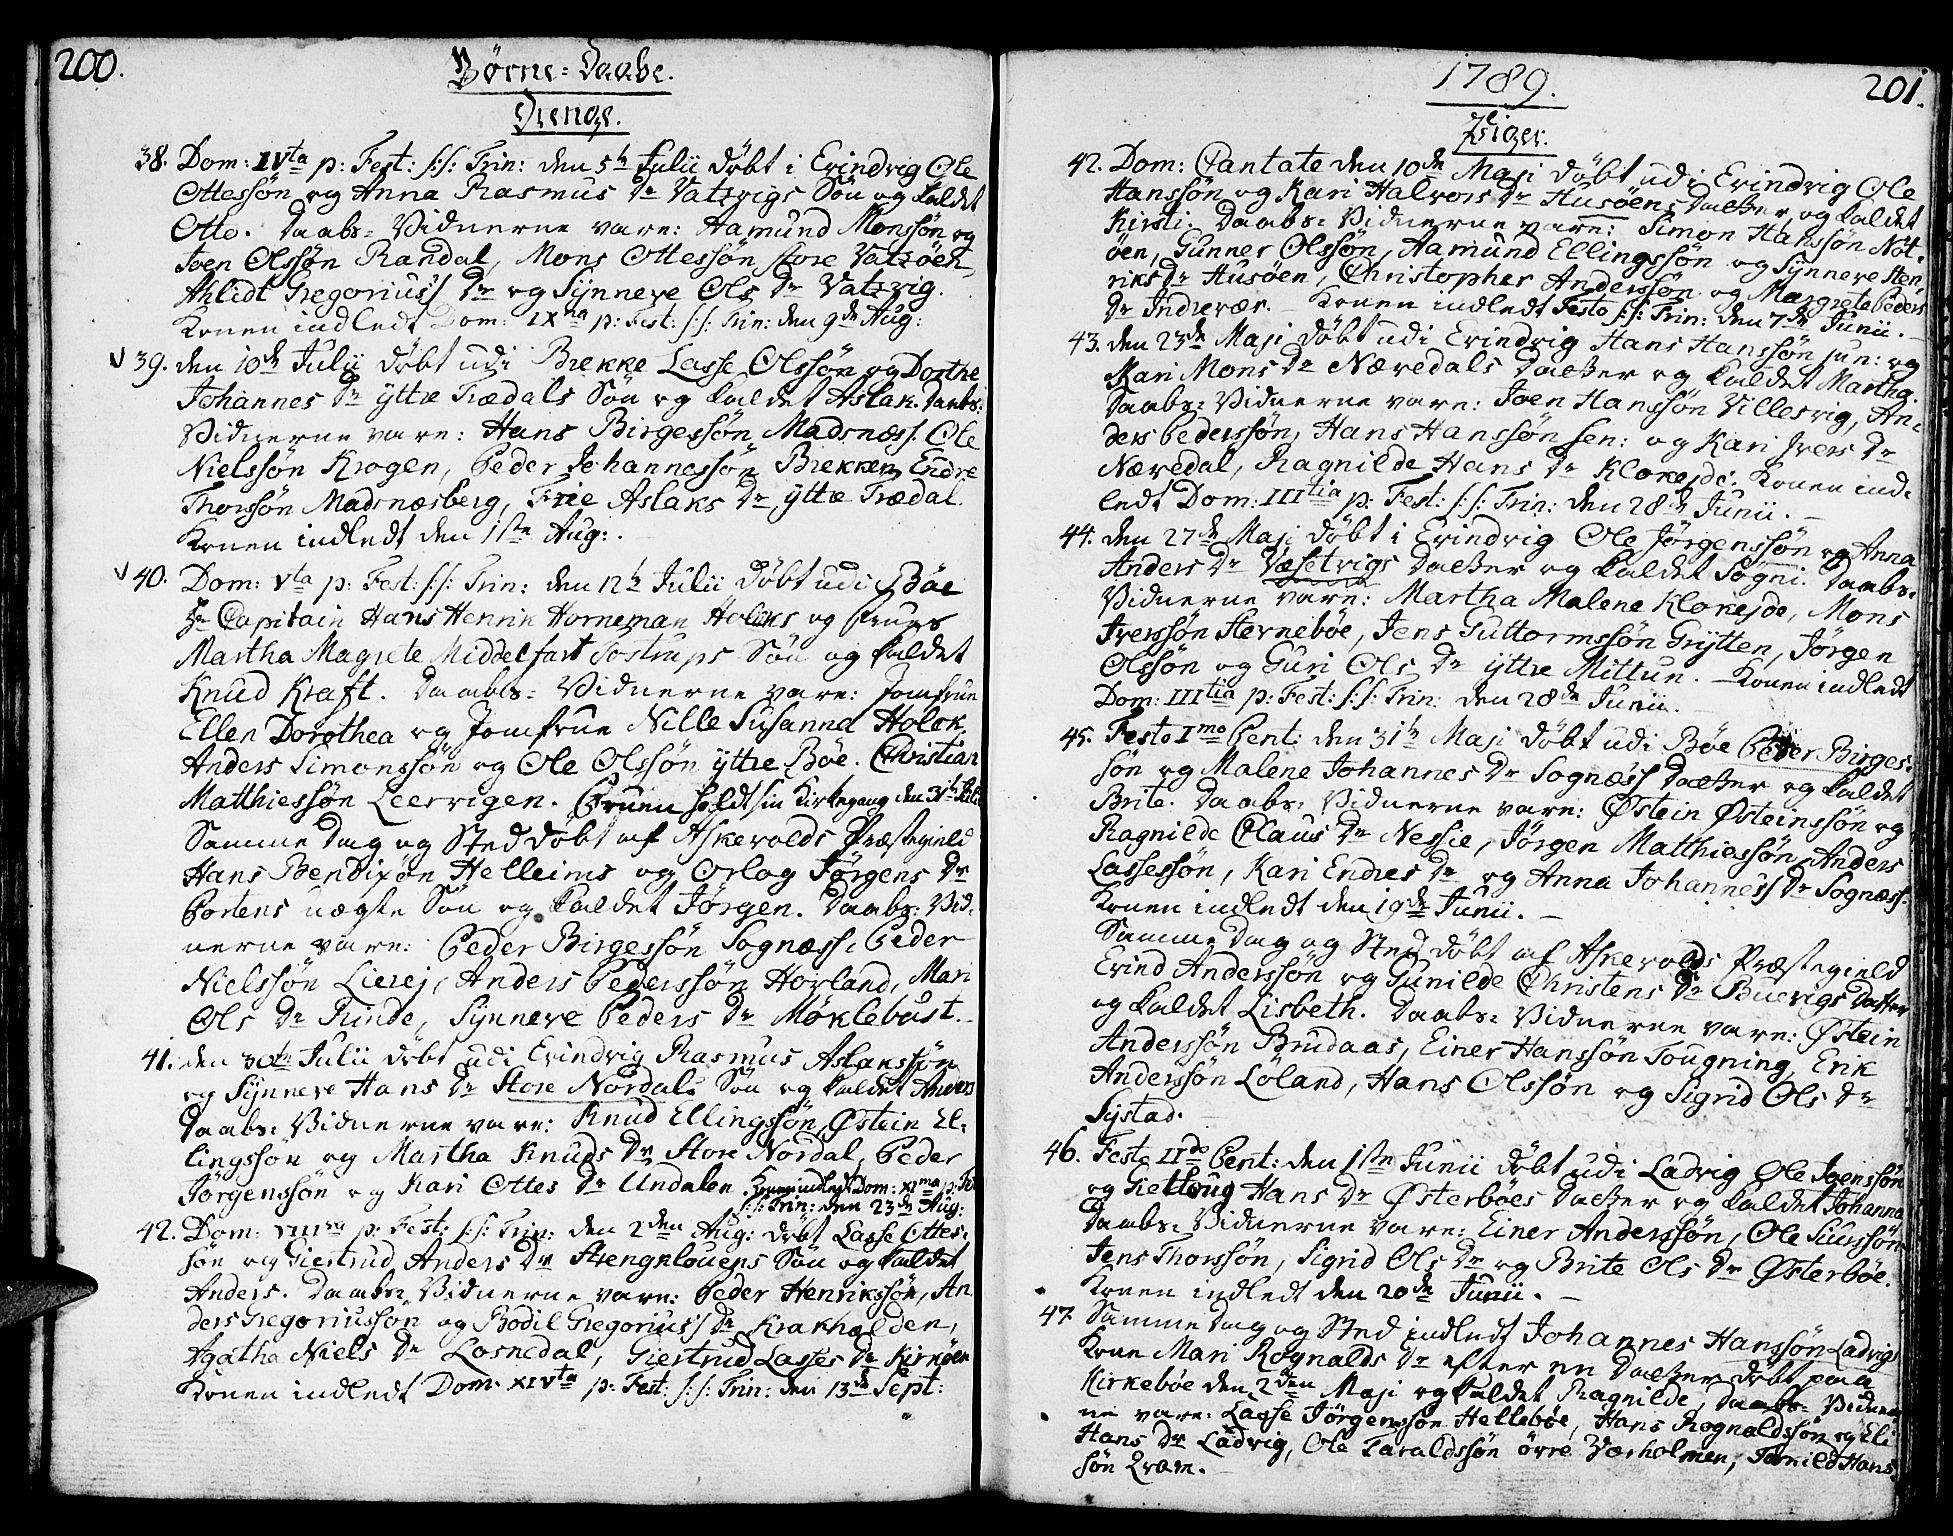 200.
Börne-Daabe.
Drenge.
38. Dom: IVta p: Fest: S:S: Trin: den 5te Julii döbt i Evindvig Ole
Ottessön og Anna Rasmus Dr Vatzvigs Sön og kaldet
Otto. Daabs-Vidnerne vare: Hamund Monssön og
Joen Olssön Randal, Mons Ottessön store Vatzöen,
Ahlidt Gregorius's Dr og Synneve Ols Dr Vatzvig.
Konen indledt Dom: IXna p: Fest: S:S: Trin: den 9de Aug:
39. den 10de Julii döbt udi Brekke Lasse Olssön og Dorthe
Johannes Dr yttre Trædals Sön og kaldet Aslak. Daabs-
Vidnerne vare: Hans Birgessön Madsnæss. Ole
Nielssön Krogen, Peder Johannessön Brekken, Endre
Thorssön Madsnæsberg, Aslaks Dr yttre Trædal.
Konen indledt den 11te Aug:.
40. Dom: Vta p: Fest: S:S: Trin: den 12te Julii döbt udi Böe
Hr Capitain Hans Henrik Horneman Holcks og Frues
Martha Magrete Middelfart Tostrups Sön og kaldet
Knud Kraft. Daabs-Vidnerne vare: Jomfrue
Ellen Dorothea og Jomfrue Nille Susanna Holck.
Anders Simonssön og Ole Olssön yttre Böe. Christian
Matthiessön Leervigen. Fruen holdt sin Kirkegang den 31te Julii
Samme Dag og Sted döbt af Askevolds Præstegield
Hans Bendixön Helleims og Orlog Jörgens Dr
Portens uægte Sön og kaldet Jörgen. Daabs-Vid-
nerne vare: Peder Birgessön Sognæss. Peder
Nielssön Lierej, Anders Pederssön Hovland, Mari
Ols Dr Rinde, Synneve Peders Dr Möklebust.
41. den 30te Julii döbt udi Evindvig Rasmus Aslakssön
og Synneve Hans Dr Store Nordals Sön og kaldet Anders
Daabs-Vidnerne vare: Knud Ellingssön, Østein El-
lingssön og Martha Knuds Dr Store Nordal, Peder
Jörgenssön og Kari Ottes Dr Undalen. Konen indledt Dom: XIma p: Fest:
S:S: Trin: den 23de Aug:
42. Dom: VIIIva p: Fest: S:S: Trin: den 2den Aug: döbt Lasse Ottes-
sön og Giertrud Anders Dr Strengklouens Sön og kaldet
Anders. Daabs-Vidnerne vare: Peder Henrikssön, An
ders Gregoriussön og Bodil Gregorius's Dr Krakhalden,
Agatha Niels Dr Losnedal, Giertrud Lasses Dr Kirköen
Konen indledt Dom: XIVta p: Fest: S:S: Trin: den 13de Sept:
1789.
201.
Piger.
42. Dom: Cantate den 10de Maji döbt udi Evindvig Ole
Hanssön og Kari Halvors Dr Husöens Datter og kaldet
Kirsti. Daabs-Vidnerne vare: Simon Hanssön Nöt-
öen, Gunner Olssön, Hamund Ellingssön og Synneve Hen-
riks Dr Husöen, Christopher Anderssön og Margrete Peders
Dr Indrevær. Konen indledt Festo S:S: Trin: den 7de Junii.
43. den 23de Maji döbt udi Evindvig Hans Hanssön jun: og
Kari Mons Dr Nævedals Datter og kaldet Martha.
Daabs-Vidnerne vare: Joen Hanssön Villesvig, An-
ders Pederssön, Hans Hanssön sen: og Kari Ivers Dr
Nævedal, Ragnilde Hans Dr Klokejde. Konen ind-
ledt Dom: IIItia p: Fest: S:S: Trin: den 28de Junii.
44. den 27de Maji döbt i Evindvig Ole Jörgenssön og Anna
Anders Dr Væsetvigs Datter og kaldet Sögni. Daabs-
Vidnerne vare: Martha Malene Klokejde, Mons
Iverssön Hernebøe, Jens Guttormssön Grytten, Jörgen
Olssön og Guri Ols Dr yttre Mittun. Konen indledt
Dom: IIItia p: Fest: S:S: Trin: den 28de Junii.
45. Festo Imo Pent: den 31te Maji döbt udi Böe Peder Birges-
sön og Malene Johannes Dr Sognæss Datter og kaldet
Brite. Daabs-Vidnerne vare: Østein Østeinssön og
Ragnilde Claus Dr Nessie, Jörgen Matthiassön, Anders
Lassessön, Kari Endres Dr og Anna Johannes's Dr Sognæss.
Konen indledt den 19de Junii.
Samme Dag og Sted döbt af Askevolds Præstegield
Evind Anderssön og Gunilde Christens Dr Buevigs Datter
og kaldet Lisbeth. Daabs-Vidnerne vare: Østein
Anderssön Brudaas, Einer Hanssön Tougning, Erik
Anderssön Löland, Hans Olssön og Sigrid Ols Dr
Systad.
46. Festo IIdo Pent: den 1ste Junii döbt udi Ladvig Ole Joenssön
og Giettoug Hans Dr Østerböes Datter og kaldet Johanna
Daabs-Vidnerne vare: Einer Anderssön, Ole Siurssön
Jens Thorssön, Sigrid Ols Dr og Brite Ols Dr Østerböe.
Konen indledt den 20de Junii.
47. Samme Dag og Sted indledt Johannes Hanssön Ladvigs
Kone Mari Rognalds Dr efter en Datter döbt paa
Kirkeböe den 2den Maji og kaldet Ragnilde, Daabs-Vidner
ne vare: Lasse Jörgenssön Helleböe, Hans Rognaldssön og Eli
Hans Dr Ladvig, Ole Taraldssön övre Værholmen, Tornild Hans
sön Qvam.